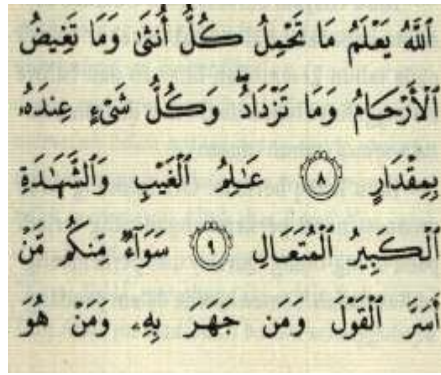 ٱللَّهُ يَعْلَمُ مَا تَحْمِلُ كُلُّ أُنثَىٰ وَمَا تَغِيضُ
ٱلْأَرْحَامُ وَمَا تَزْدَادُ ۖ وَكُلُّ شَىْءٍ عِندَهُۥ
بِمِقْدَارٍ ٨ عَـٰلِمُ ٱلْغَيْبِ وَٱلشَّهَـٰدَةِ
ٱلْكَبِيرُ ٱلْمُتَعَالِ ٩ سَوَآءٌ مِّنكُم مَّنْ
أَسَرَّ ٱلْقَوْلَ وَمَن جَهَرَ بِهِۦ وَمَنْ هُوَ